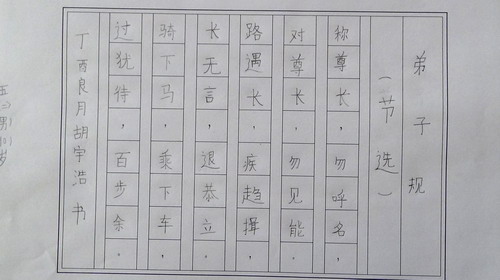 弟子规
（节选）
称尊长，勿呼名，
对尊长，勿见能，
路遇长，疾趋揖，
长无言，退恭立。
骑下马，乘下车，
过犹待，百步余。
丁酉良月胡宇浩书